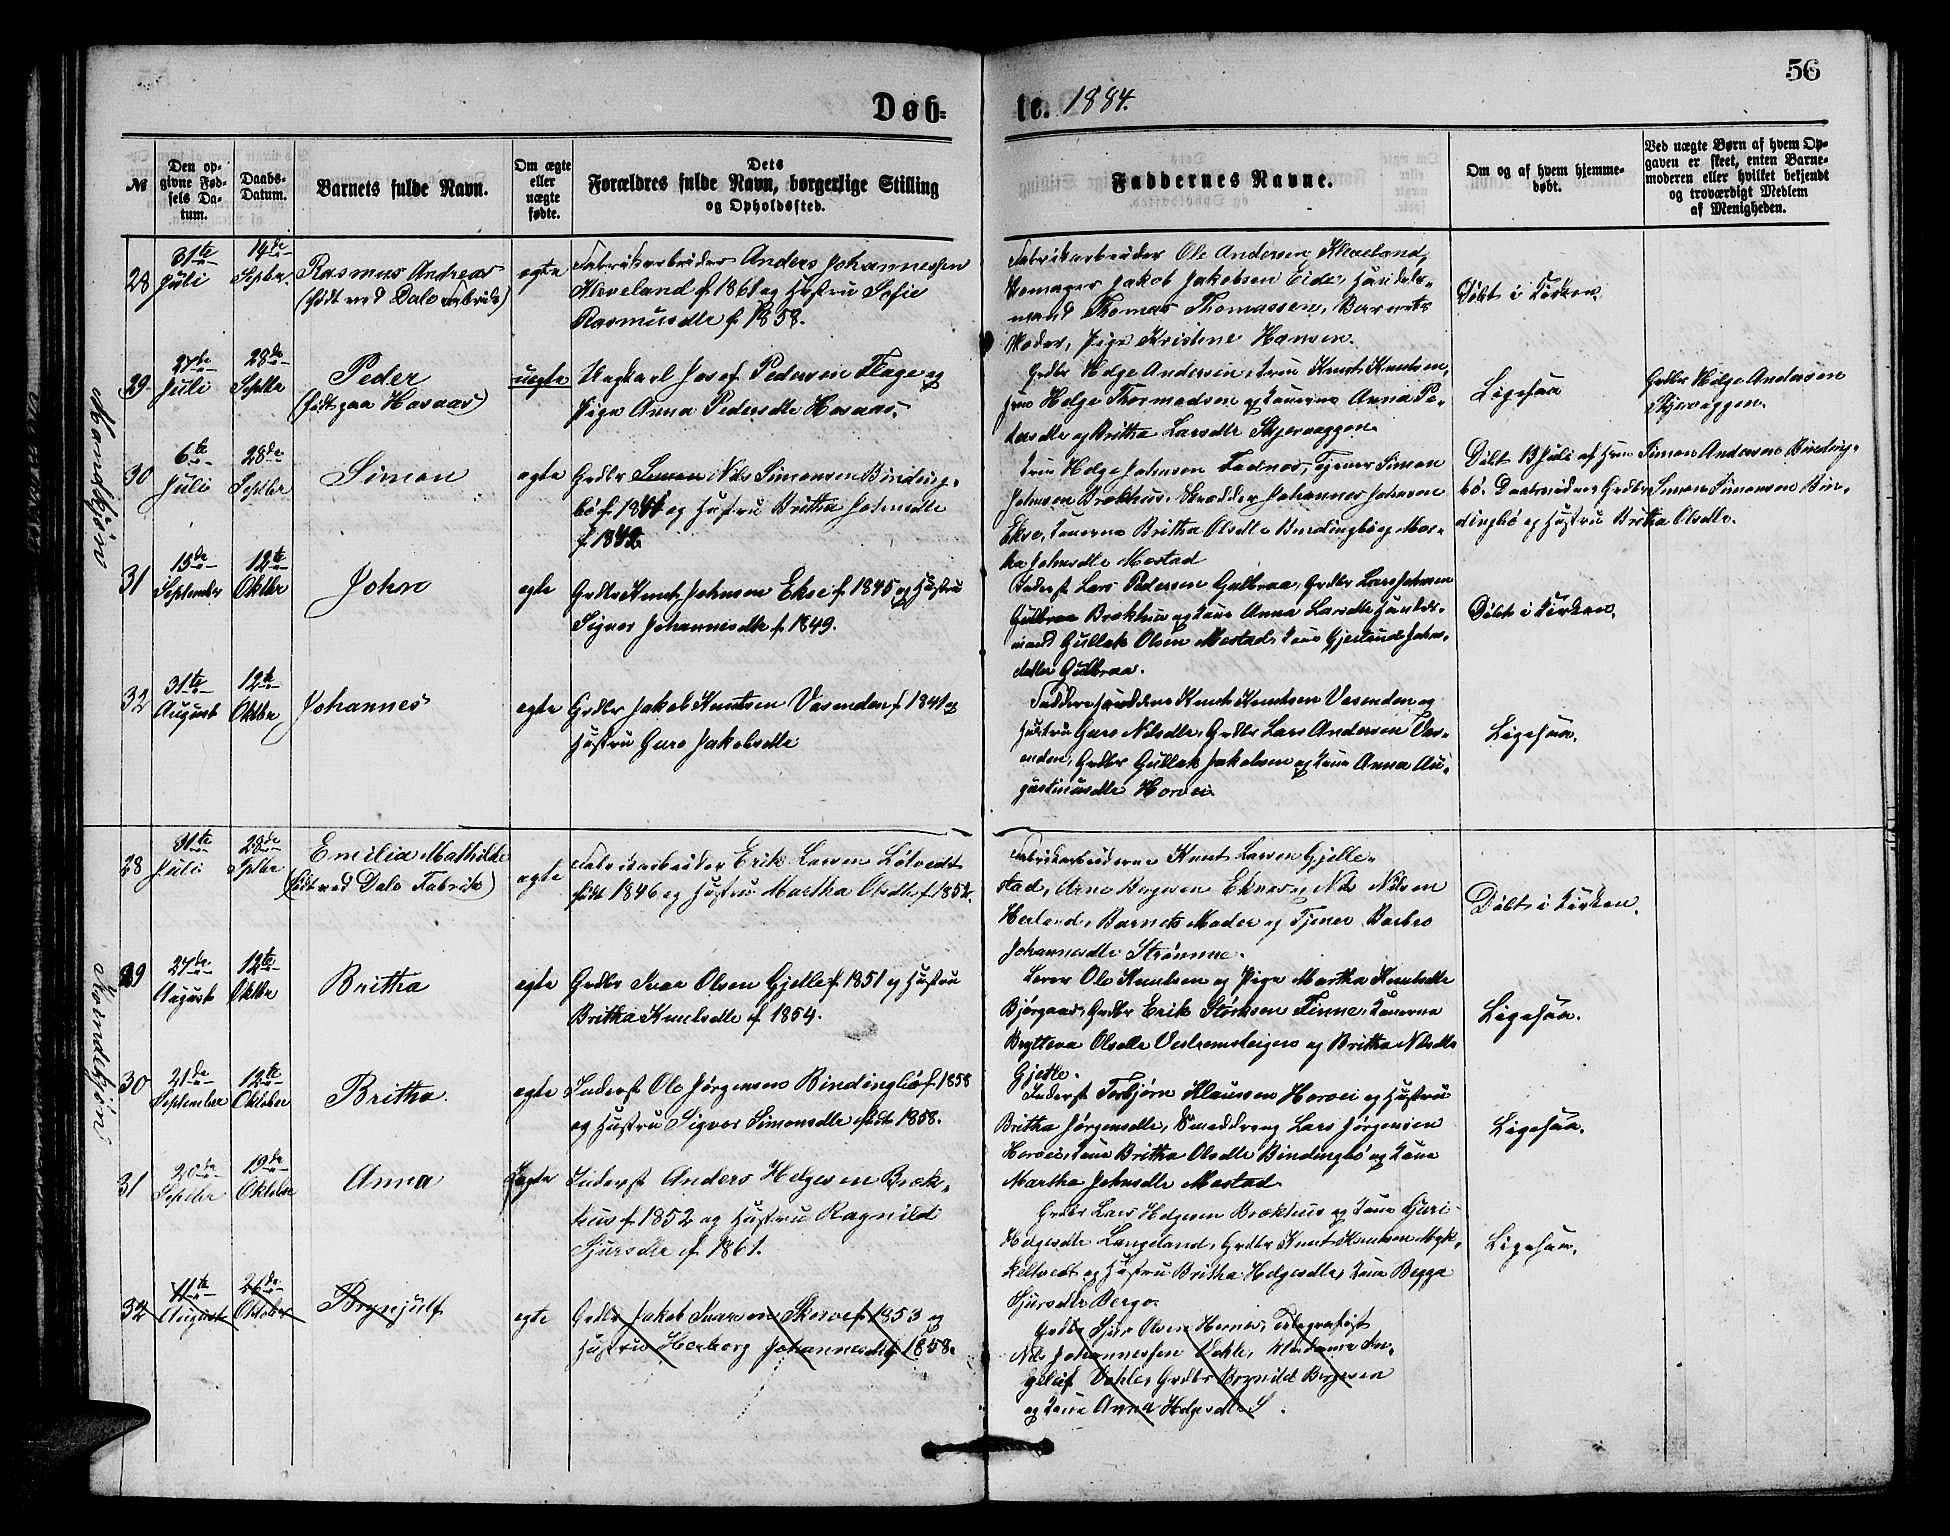 56
Døb-
te. 1884.
№
Den op-
givne Fød-
sels Da-
tum.
Daabs-
Datum.
Barnets fulde Navn.
Om ægte
eller
uægte
fødte.
Dets
Forældres fulde Navn, borgerlige Stilling
og Opholdssted.
Faddernes Navne.
Om og af hvem hjemme-
døbt.
Ved uægte Børn af hvem Op-
gaven er skeet, enten Barne-
moderen eller hvilket bekjendt
og troværdigt Medlem
af Menigheden.
Mandkjøn
28
31te
Juli
14de
Septbr.
Rasmus Andreas
(født ved Dale Fabrik)
egte
Fabrikarbeider Anders Johannessen
Kleveland f. 1861 og Hustru Sofie
Rasmusdtr f. 1858.
Fabrikarbeider Ole Andersen Kleveland,
Jakob Jakobsen Eide, Handels-
mand Thomas Thomassen, Barnets
Moder, Pige Kristine Hansen.
Døbt i Kirken.
29
27de
Juli
28de
Septbr
Peder
(født paa Hosaas)
uegte
Ungkarl Josef Pedersen Flage og
Pige Anna Pedersdtr Hosaas.
Grdbr Helge Andersen, Knut Knutsen,
Helge Thormodsen og Anna Pe-
dersdtr og Britha Larsdtr Skjerveggen
Ligesaa
Grdbr Helge Andersen
Skjerveggen.
30
6te
Juli
28de
Septbr
Simon
egte
Grdbr Simon Nils Simonsen Binding-
bø f. 1841 og Hustru Britha Johnsdtr
f. 1842
Helge Johnsen Fadnes, Tjener Simon
Johnsen Brækhus, Skrædder Johannes Johnsen
Ekse, Britha Olsdtr Bindingbø og Mar-
tha Johnsdtr Mestad
Døbt 13 Juli af Simon Andersen Binding-
bø. Daabsvidner Grdbr Simon Simonsen Bin-
dingbø og Hustru Britha Olsdtr.
31
15de
September
12te
Oktbr
John
egte
Grdbr Knut Johnsen Ekse f. 1845 og Hustru
Signer Johannesdtr f. 1849.
Inderst Lars Pedersen Gulbraa, Grdbr Lars Johnsen
Gulbraa Brækhus og Anna Larsdtr Handels-
mand Gullak Olsen Mestad, Gjertrud Johns-
datter Gulbraa.
Døbt i Kirken.
32
31te
August
12te
Oktbr
Johannes
egte
Grdbr Jakob Knutsen Vasenden f. 1841 og
Hustru Guro Jakobsdtr
Knut Knutsen Vasenden og
Hustru Guro Nilsdtr, Grdbr Lars Andersen Vas-
enden, Grdbr Gullak Jakobsen og Anna Au-
gustinusdtr Horvei
Ligesaa.
Kvindekjøn
28
31te
Juli
28de
Sptbr
Emilia Mathilde
(født ved Dale Fabrik)
egte
Fabrikarbeider Erik Larsen Løtvedt
født 1846 og Hustru Martha Olsdtr f. 1852.
Fabrikarbeiderne Knut Larsen Gjelle-
stad, Arne Borgersen Eknes, Nils Nilsen
Herland, Barnets Moder og Tjener Barbro
Johannesdtr Strømme.
Døbt i Kirken.
29
27de
August
12te
Oktbr
Britha
egte
Grdbr Ivar Olsen Gjelle f. 1851 og Hustru
Britha Knutsdtr f. 1854.
Lærer Ole Knutsen og Pige Martha Knutsdtr
Bjørgaas, Grdbr Erik Størksen Finne,
Brytteva Olsdtr Vestremsteigen og Britha Nilsdtr
Gjelle.
Ligesaa.
30
21de
September
12te
Oktober
Britha.
egte
Inderst Ole Jørgensen Bindingbø f. 1858
og Hustru Sigvor Simonsdtr født 1858.
Inderst Torbjørn Klaussen Horvei og Hustru
Britha Jørgensdtr, Smeddreng Lars Jørgensen
Horvei, Britha Olsdtr Bindingbø og
Martha Johnsdtr Mestad
Ligesaa.
31
20de
Septbr
19de
Oktober
Anna
Egte
Inderst Anders Helgesen Bræk-
hus f. 1852 og Hustru Ragnild
Sjursdtr f. 1861.
Grdbr Lars Helgesen Brækhus og Guri
Helgesdtr Langeland, Grdbr Knut Knutsen Myk-
keltvedt og Hustru Britha Helgesdtr, Begga
Sjursdtr Berge
Ligesaa.
32
11te
August
26de
Oktober
Brynjulf
egte
Grdbr Jakob Ivarsen Skorve f. 1853 og
Hustru Herborg Johannesdtr f. 1858.
Grdbr Sjur Olsen Hernes, Telegrafist
Nils Johannessen Vehle, Madame In-
geleif Vehle, Grdbr Brynild Birgersen
og Anna Helgesdtr S.